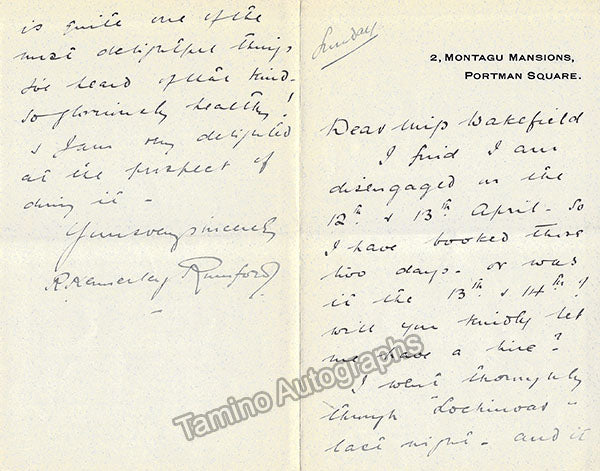 Sunday
2, MONTAGU MANSIONS,
PORTMAN SQUARE.
Dear Miss Wakefield
I find I am
disengaged on the
12th & 13th April. So
I have booked these
two days. or was
it the 13th & 14th?
will you kindly let
me have a line?
I went thoroughly
through "Lochinvar"
last night - and it
is quite one of the
most delightful things
I've heard of that kind-
so gloriously healthy!
& I am very delighted
at the prospect of
doing it -
Yours very sincerely
R. Kennerley Rumford
Tamino Autographs